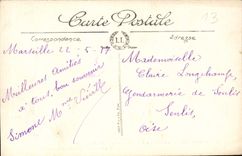 13
Carte Postale
Correspondance
Adresse
LL
Marseille 22-5-
Meilleures amitiés
à tous, bon souvenir
Simone
Mademoiselle
Claire Longchamp
Gendarmerie de Senlis
Senlis
Oise